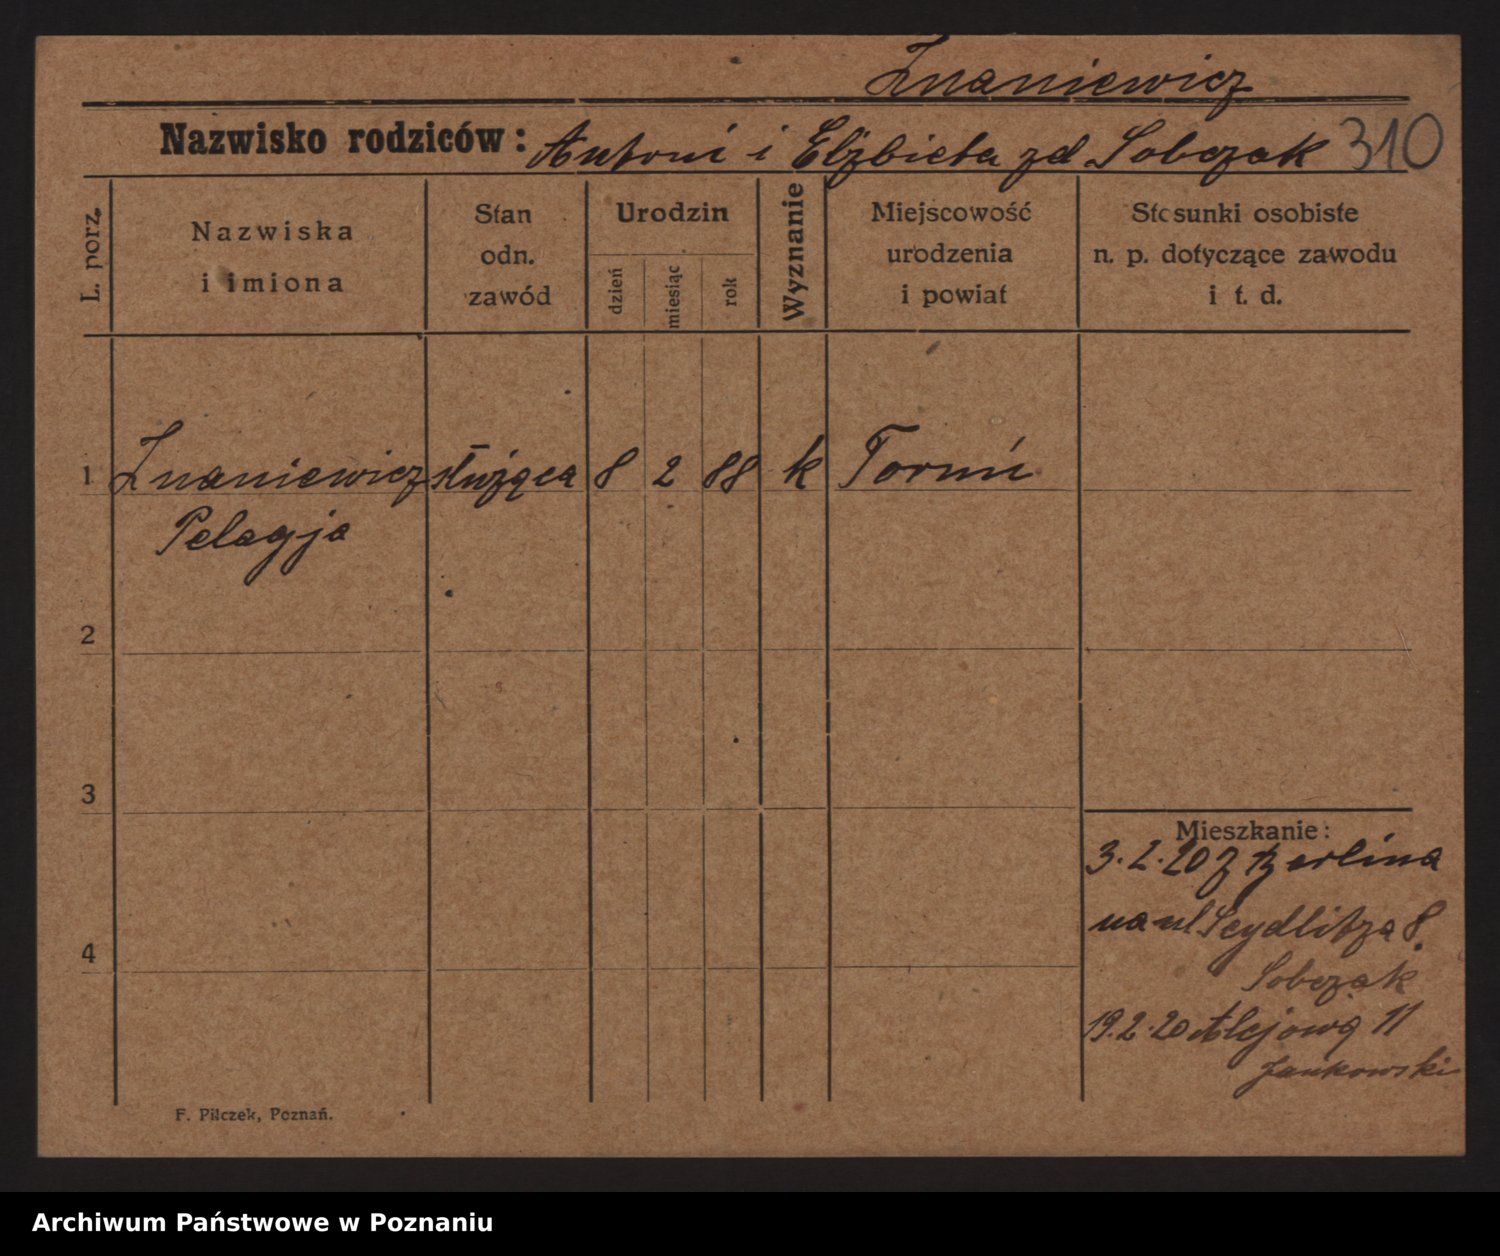 Znaniewicz
Nazwisko rodziców: Antoni i Elżbieta zd Sobczak 310
L. porz.
Nazwiska
i imiona
Stan
odn.
zawód
Urodzin
dzień
miesiąc
rok
Wyznanie
Miejscowość
urodzenia
i powiat
Stosunki osobiste
n. p. dotyczące zawodu
i t. d.
1 Znaniewicz służąca 8 2 88 k Toruń
Pelagja
2
3
Mieszkanie:
3.2.20 z Berlina
na ul Seydlitza 8.
4
Sobczak
19.2.20 Alejową 11
Jankowski
F. Pilczek, Poznań.
Archiwum Państwowe w Poznaniu